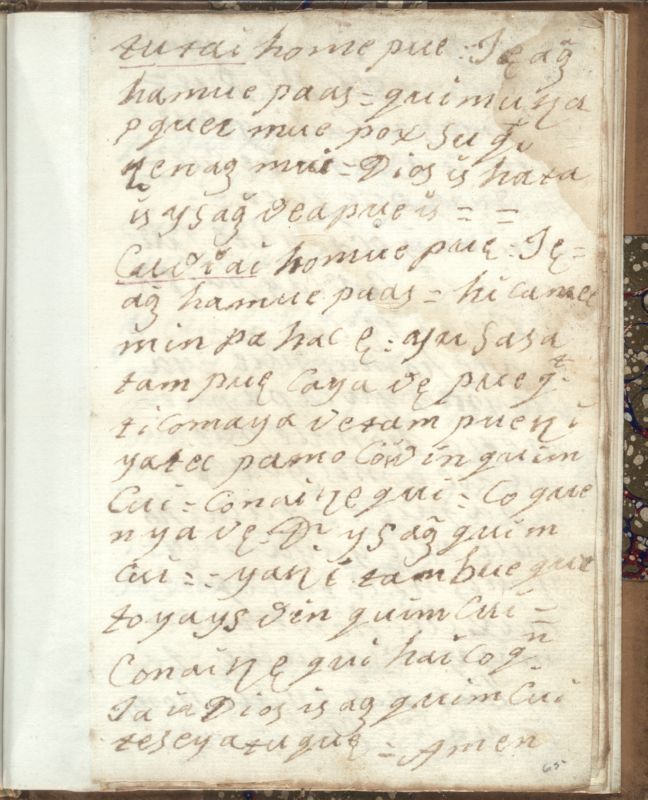 tutai home pue : Ję ag̃
hamue paas = quimuɳa
pquet mue pox su q̃
ɳenag̃ mui = Dios is hata
is ysag̃ deapueis = =
Cudiai homue puę : Ję =
ag̃ hamue paas = hicamee
minpa hacę : ayu sasa
tam puę Caya vę pue q.t
ticomaya vetam pueɳi
yatec pamo Covin quim
Cui = Conaiɳę qui = Coque
nyavę = Di ysag̃ quim
Cui = = yaɳi tambue que
to yays din quim Cui =
Conaiɳę qui hai Coq̃n
Ja ia Dios is ag quim Cui
teseyatuquę = Amen
65